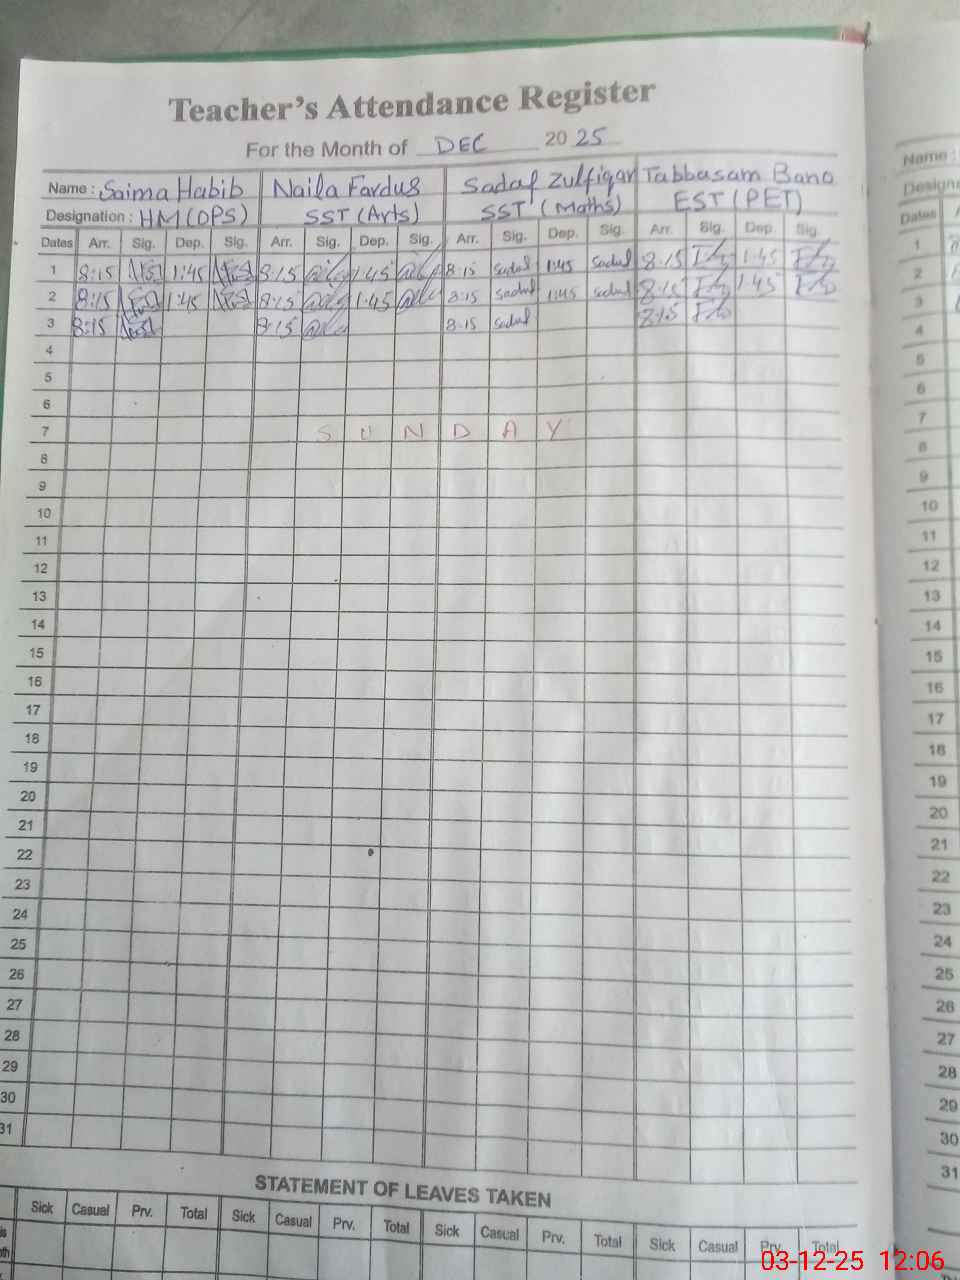 Teacher's Attendance Register
For the Month of DEC 2025
Name : Saima Habib Naila Fardus Sadaf Zulfiqar Tabbasam Bano
Designation : HM (OPS) SST (Arts) SST (Maths) EST (PET)
Dates Arr. Sig. Dep. Sig. Arr. Sig. Dep. Sig. Arr. Sig. Dep. Sig. Arr. Sig. Dep. Sig.
1 8:15 1:45 8:15 1:45 8:15 Sadaf 1:45 Sadaf 8:15 1:45
2 8:15 1:45 8:15 1:45 8:15 Sadaf 1:45 Sadaf 8:15 1:45
3 8:15 8:15 8:15 Sadaf 8:15
4
5
6
7 S U N D A Y
8
9
10
11
12
13
14
15
16
17
18
19
20
21
22
23
24
25
26
27
28
29
30
31
STATEMENT OF LEAVES TAKEN
Sick Casual Prv. Total Sick Casual Prv. Total Sick Casual Prv. Total Sick Casual Prv. Total
Name :
Dates
1
2
3
4
5
6
7
8
9
10
11
12
13
14
15
16
17
18
19
20
21
22
23
24
25
26
27
28
29
30
31
03-12-25 12:06